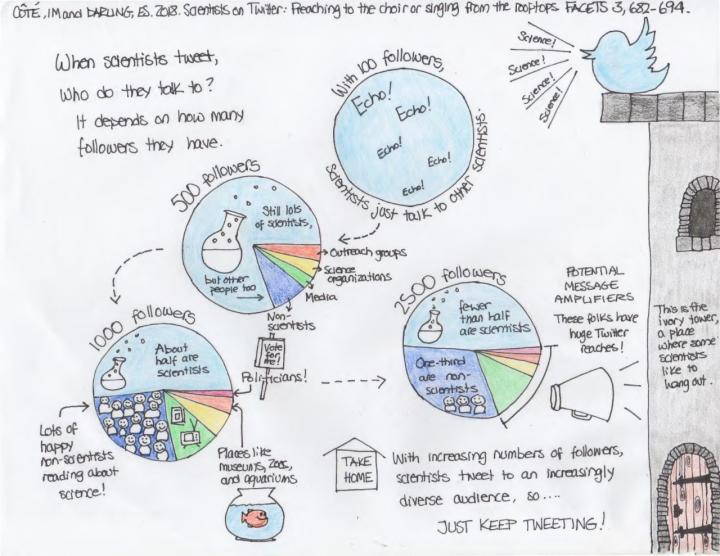 CÔTÉ, IM and DARLING, ES. 2018. Scientists on Twitter: Preaching to the choir or singing from the rooftops. FACETS 3, 682-694.
When scientists tweet,
Who do they talk to?
It depends on how many
followers they have.
With 100 followers,
Echo!
Echo!
Echo!
Echo!
Echo!
Scientists just talk to other scientists.
Science!
Science!
Science!
Science!
500 followers
Still lots
of scientists,
but other
people too
Outreach groups
Science
organizations
Media
Non-
scientists
1000 followers
About
half are
scientists
Vote
for
me!
Politicians!
Lots of
happy
non-scientists
reading about
science!
Places like
museums, zoos,
and aquariums
2500 followers
fewer
than half
are scientists
One-third
are non-
scientists
POTENTIAL
MESSAGE
AMPLIFIERS
These folks have
huge Twitter
reaches!
This is the
ivory tower,
a place
where some
scientists
like to
hang out.
TAKE
HOME
With increasing numbers of followers,
scientists tweet to an increasingly
diverse audience, so....
JUST KEEP TWEETING!